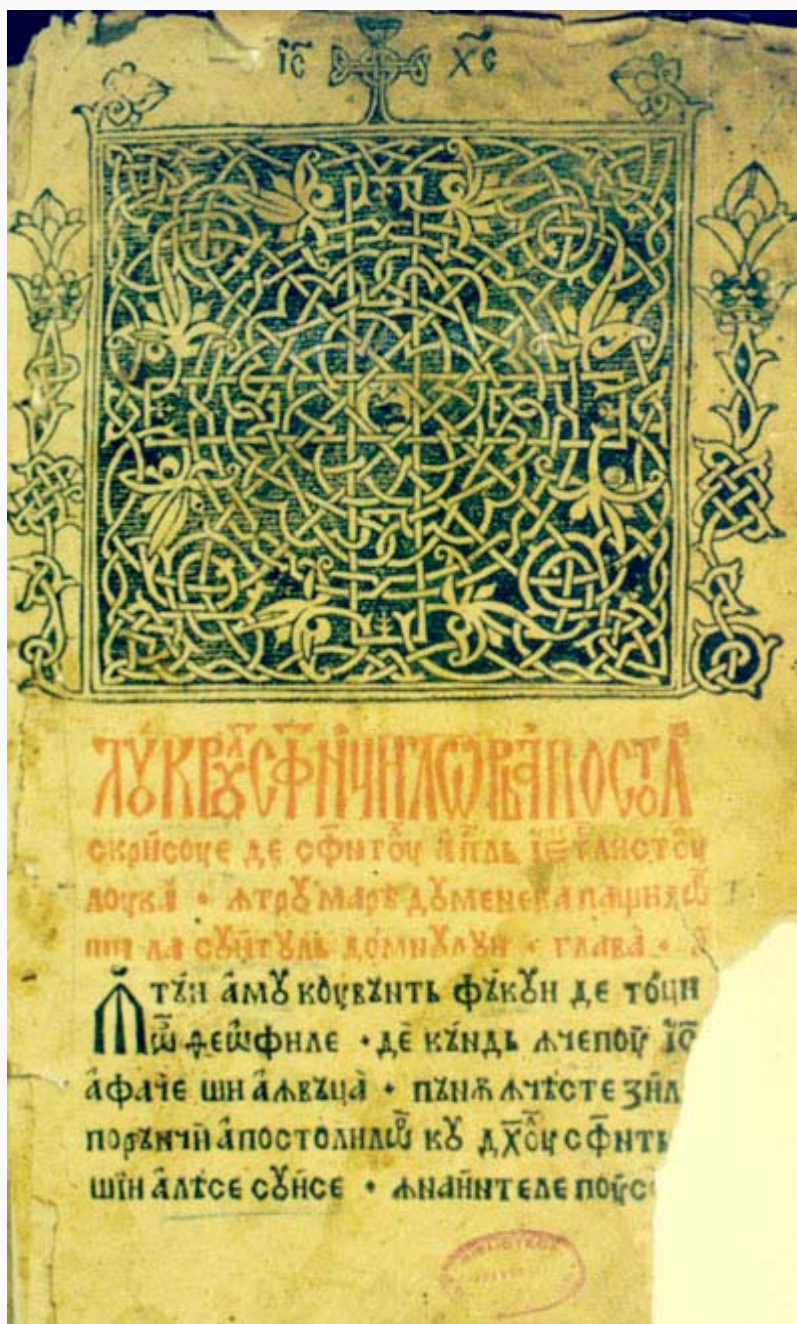 І҃С Х҃С
лꙋкрꙋл сфинчилѡр апостол
скрисоуе де сфнтоу апⷭ҇ль
лоука • ꙟтрꙋ марѣ дꙋменека пащилѡⷬ
ши ла сꙋитꙋль домнꙋлꙋи • глава • а҃
ꙟтѫи амꙋ коувѫнть фѫкꙋи де тоци
ѡ ѳеѡфиле • де кѫндь ꙟчепоу І҃с
афаче ши аꙟвѫца • пѫнѫ ꙟчѣсте зил
порѫнчи апостолилѡⷬ кꙋ дꙋхⷧоу сфнть
шїи алѣсе сꙋисе • ꙟнаинтеле поус